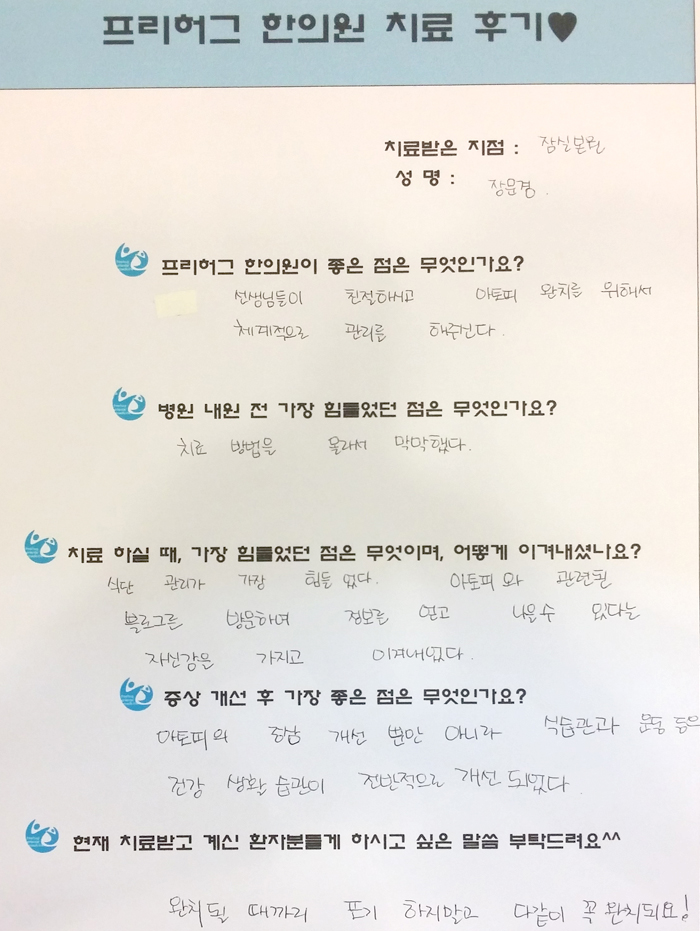 프리허그 한의원 치료 후기♥
치료받은 지점 : 잠실본원
성 명 : 장문경.
프리허그 한의원이 좋은 점은 무엇인가요?
선생님들이 친절하시고 아토피 완치를 위해서
체계적으로 관리를 해주신다.
병원 내원 전 가장 힘들었던 점은 무엇인가요?
치료 방법을 몰라서 막막했다.
치료 하실 때, 가장 힘들었던 점은 무엇이며, 어떻게 이겨내셨나요?
식단 관리가 가장 힘들 었다. 아토피 와 관련된
블로그를 방문하여 정보를 얻고 나을수 있다는
자신감을 가지고 이겨내었다.
증상 개선 후 가장 좋은 점은 무엇인가요?
아토피의 증상 개선 뿐만 아니라 식습관과 운동 등의
건강 생활 습관이 전반적으로 개선 되었다.
현재 치료받고 계신 환자분들게 하시고 싶은 말씀 부탁드려요^^
완치 될 때까지 포기 하지말고 다같이 꼭 완치되요!